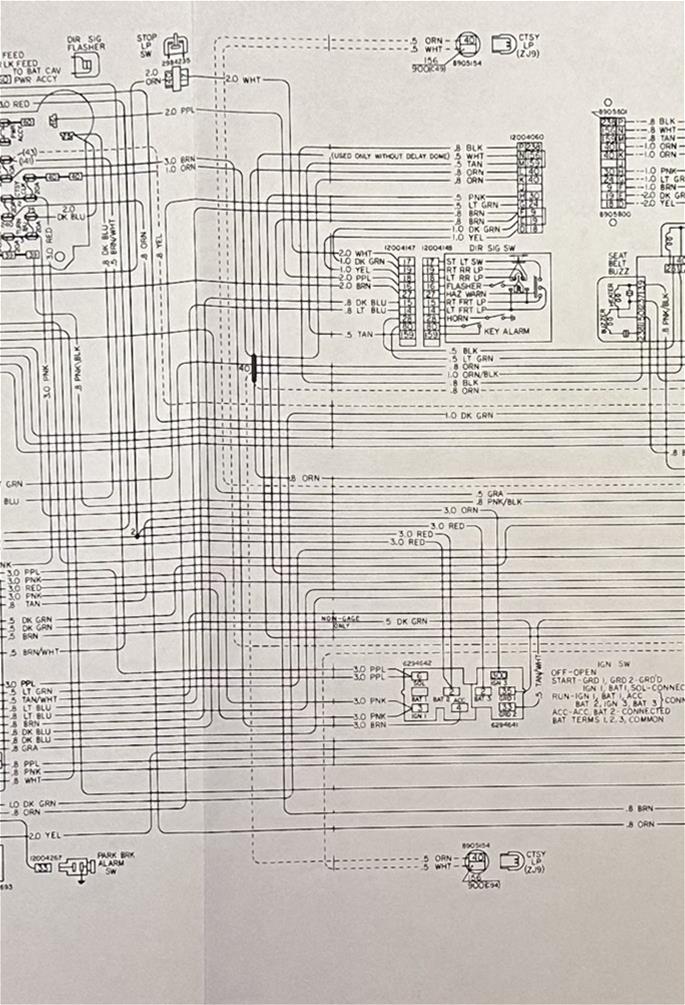 DIR SIG
FLASHER
STOP
LP
SW
2984235
FEED
LK FEED
TO BAT CAV
PWR ACCY
2.0
ORN
2.0 WHT
3.0 RED
2.0 PPL
(43)
(41)
3.0 BRN
1.0 ORN
40
40
2.0
DK BLU
3.0 RED
39
39
.8 DK BLU
.5 BRN/WHT
.8 ORN
.8 YEL
.5 ORN
.5 WHT
40
156
900(49)
8905154
CTSY
LP
(ZJ9)
12004060
.8 BLK
(USED ONLY WITHOUT DELAY DOME) .5 WHT
.5 TAN
.8 ORN
.8 ORN
.5 PNK
.5 LT GRN
.8 BRN
.8 BRN
1.0 DK GRN
1.0 YEL
8905801
.8 BLK
.8 WHT
.8 TAN
1.0 ORN
1.0 ORN
1.0 PNK
1.0 LT GR
1.0 BRN
2.0 DK GR
2.0 YEL
8905800
12004147
12004148
DIR SIG SW
2.0 WHT 17 17 ST LT SW
1.0 DK GRN 19 19 RT RR LP
1.0 YEL 18 18 LT RR LP
2.0 PPL 16 16 FLASHER
2.0 BRN 27 27 HAZ WARN
.8 DK BLU 15 15 RT FRT LP
.8 LT BLU 14 14 LT FRT LP
28 28 HORN
80 80
.5 TAN 159 159
KEY ALARM
SEAT
BELT
BUZZ
BUZZER
.8 PNK/BLK
3.0 PNK
.8 PNK/BLK
40
.5 BLK
.5 LT GRN
.8 ORN
1.0 ORN/BLK
.8 BLK
.8 ORN
1.0 DK GRN
GRN
BLU
.8 ORN
.5 GRA
.8 PNK/BLK
3.0 ORN
3.0 RED
3.0 RED
3.0 RED
2
NK
3.0 PPL
3.0 PNK
3.0 RED
3.0 PNK
.8 TAN
.5 DK GRN
.5 DK GRN
.5 BRN
.5 BRN/WHT
NON-GAGE
ONLY
.5 DK GRN
3.0 PPL
.5 LT GRN
.5 TAN/WHT
.8 LT BLU
.8 LT BLU
.8 BRN
.8 DK BLU
.8 DK BLU
.8 GRA
.8 PPL
.8 PNK
.8 WHT
1.0 DK GRN
.8 ORN
6294642
3.0 PPL
3.0 PPL
6
SOL
BAT 1
3.0 PNK
3
3.0 PNK
IGN 1
3.0 BRN
2
BAT 2
ACC
4
2
BAT 3
300
IGN 3
35
GRD 1
33
GRD 2
6294641
.5 TAN/WHT
IGN SW
OFF-OPEN
START-GRD 1, GRD 2-GRD'D
IGN 1, BAT 1, SOL-CONNEC
RUN-IGN 1, BAT 1, ACC
BAT 2, IGN 3, BAT 3 } CONN
ACC-ACC, BAT 2-CONNECTED
BAT TERMS 1, 2, 3, COMMON
.8 BRN
.8 ORN
2.0 YEL
12004267
33
PARK BRK
ALARM
SW
693
.5 ORN
.5 WHT
8905154
40
156
900(94)
CTSY
LP
(ZJ9)